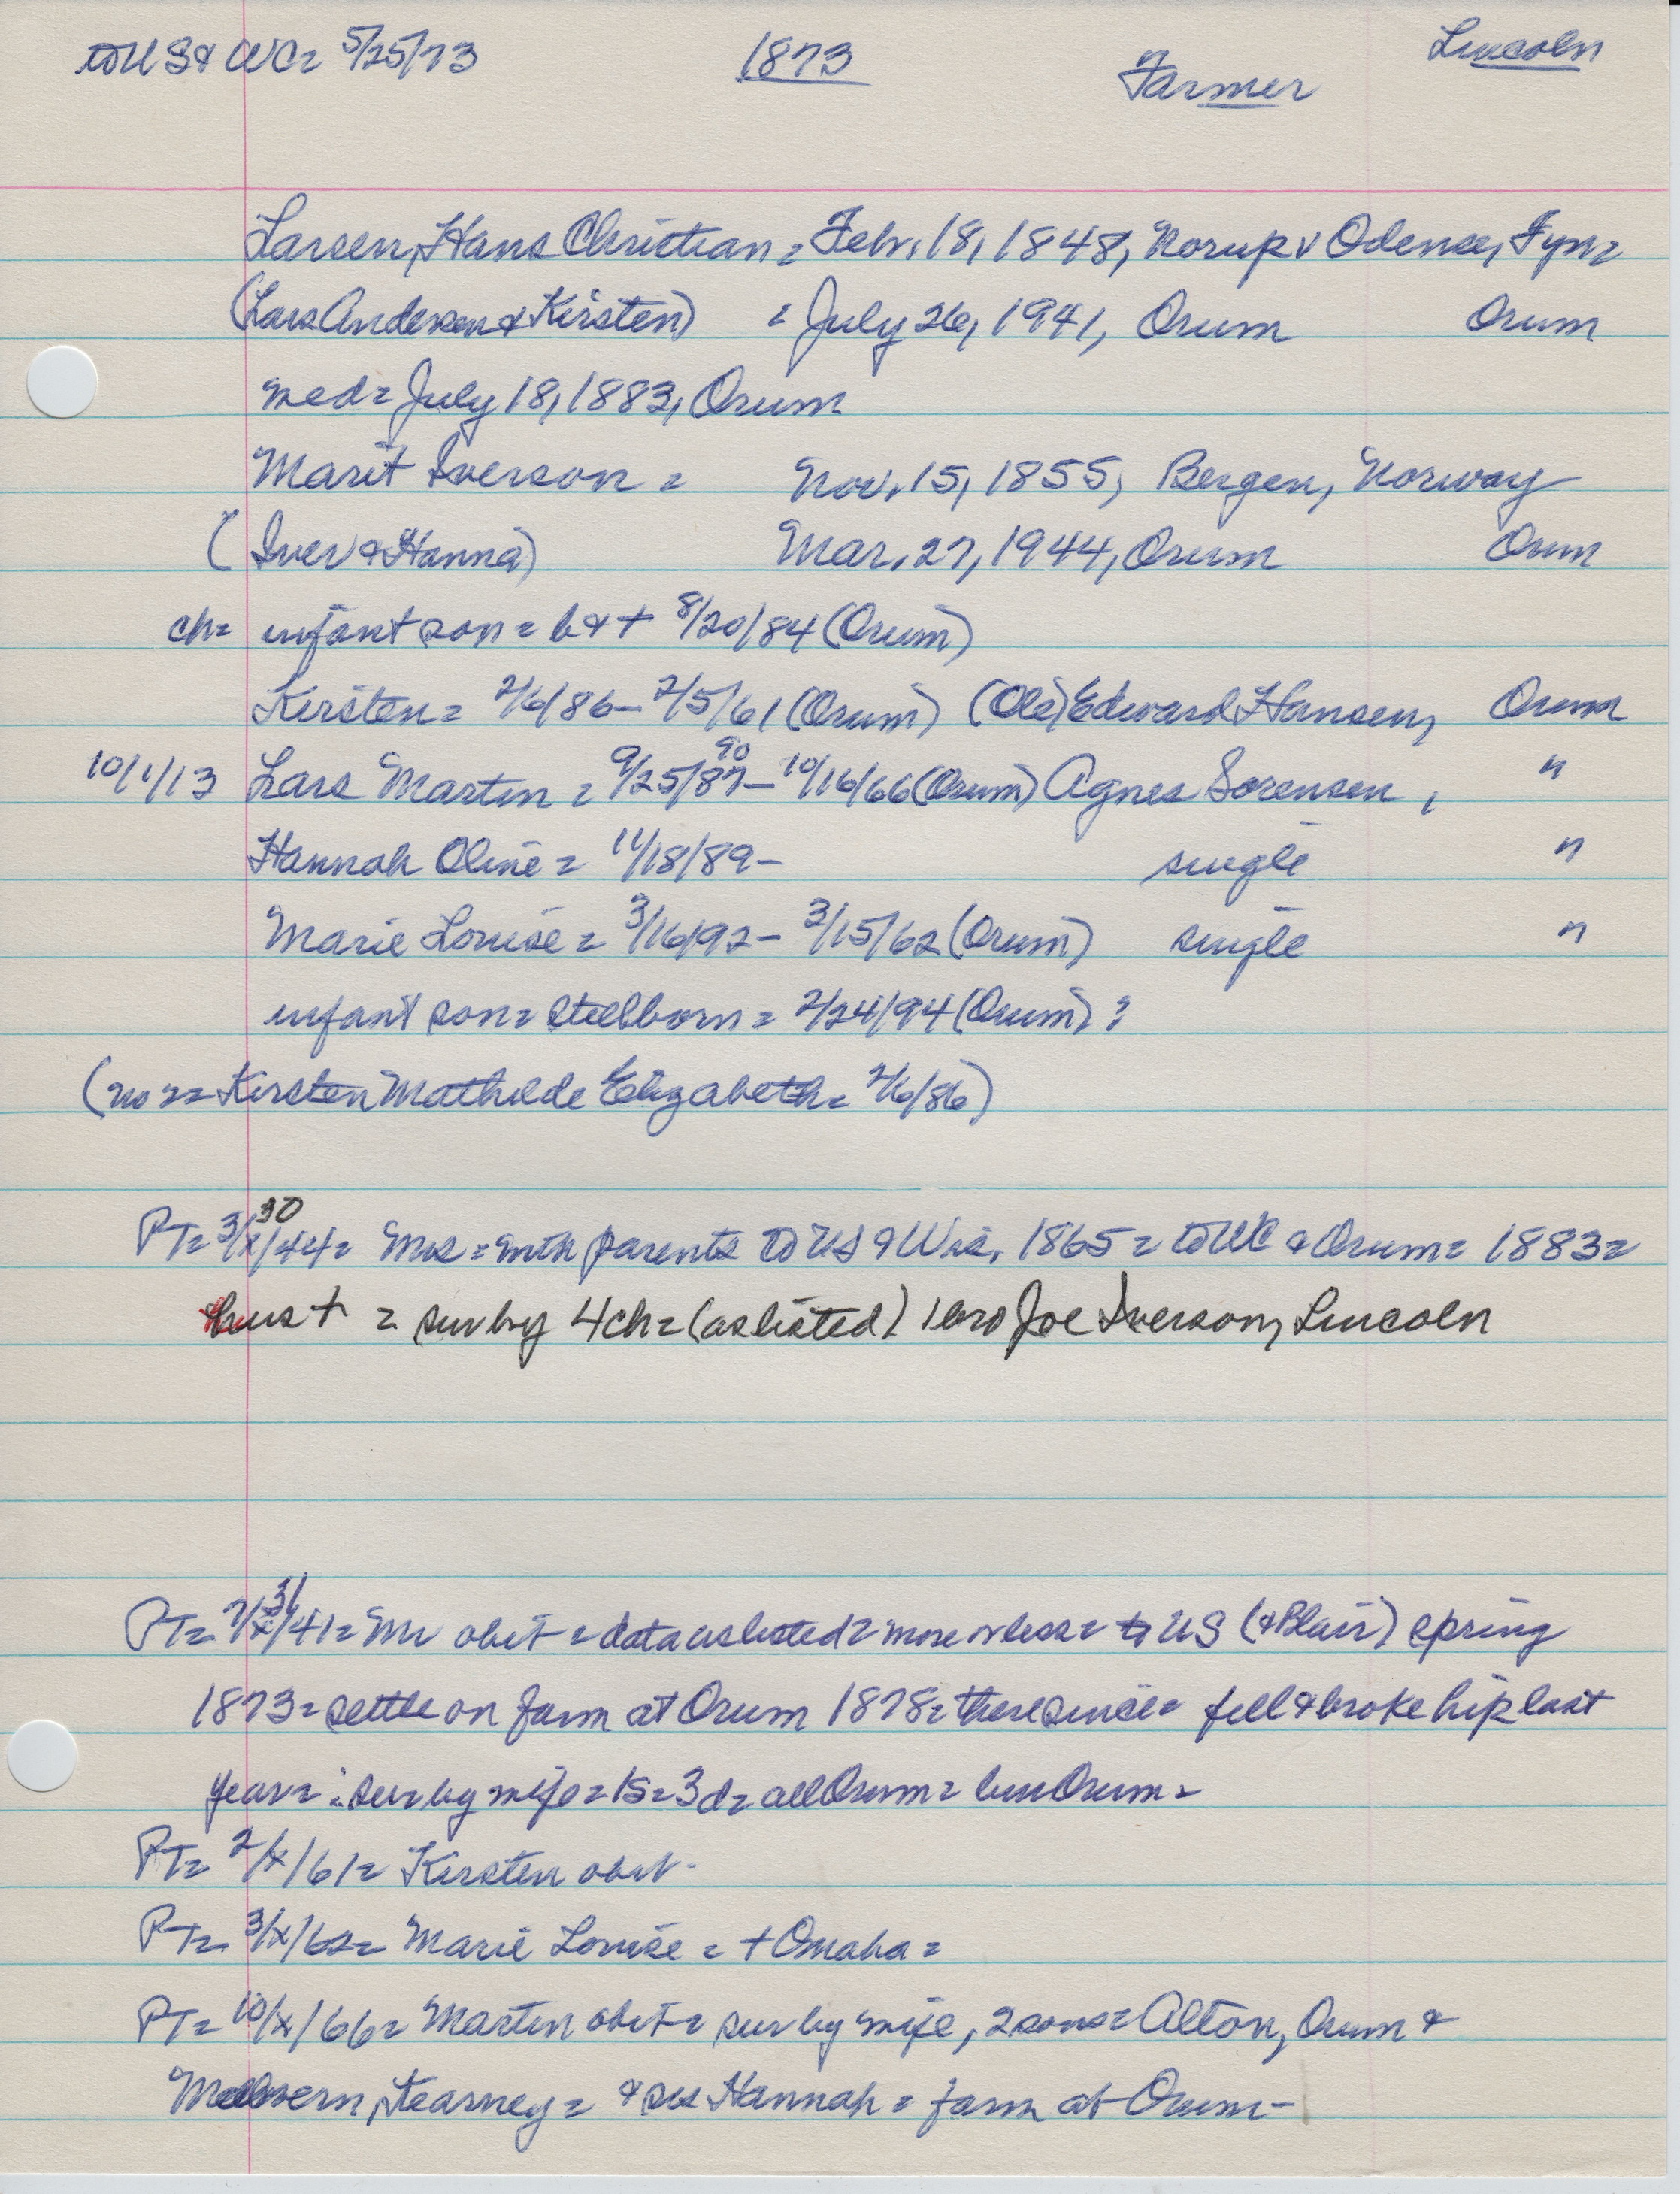 to US & WC = 5/25/73 1873 Farmer Lincoln
Larsen, Hans Christian = Febr. 18, 1848, Norup v Odense, Fyn =
(Lars Andersen & Kirsten) = July 26, 1941, Orum Orum
med = July 18, 1883, Orum
Marit Iverson = Nov. 15, 1855, Bergen, Norway
(Iver & Hanna) Mar. 27, 1944, Orum Orum
ch = infant son = b & + 8/20/84 (Orum)
Kirsten = 2/6/86 - 2/5/61 (Orum) (Ole) Edward Hansen, Orum
10/1/13 Lars Martin = 9/25/87 90 - 10/16/66 (Orum) Agnes Sorensen, "
Hannah Oline = 11/18/89 - single "
Marie Louise = 3/16/92 - 3/15/62 (Orum) single "
infant son = stillborn = 2/24/94 (Orum) ?
(no 2 = Kirsten Mathilde Elizabeth = 2/6/86)
PT = 3/30/44 = Mrs = with parents to US & Wis. 1865 = to WC & Orum = 1883 =
hus + = sur by 4 ch = (as listed) 1 bro Joe Iverson, Lincoln
PT = 7/31/41 = Mr obit = data as listed = more or less = to US (& Blair) spring
1873 = settle on farm at Orum 1878 = there since = fell & broke hip last
year = sur by wife = 1 s = 3 d = all Orum = bur Orum =
PT = 2/x/61 = Kirsten obit -
PT = 3/x/62 = Marie Louise = + Omaha =
PT = 10/x/66 = Martin obit = sur by wife, 2 sons = Alton, Orum &
Kearney = & sis Hannah = farm at Orum -